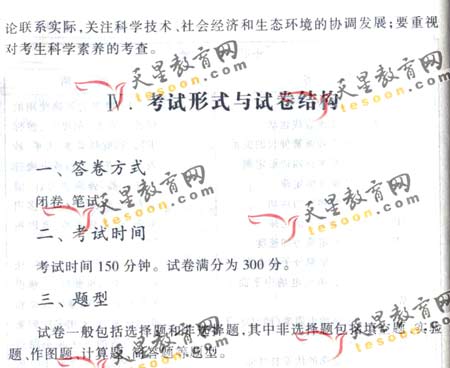 论联系实际,关注科学技术、社会经济和生态环境的协调发展;要重视
对考生科学素养的考查。
Ⅳ. 考试形式与试卷结构
一、答卷方式
闭卷、笔试。
二、考试时间
考试时间 150 分钟。试卷满分为 300 分。
三、题型
试卷一般包括选择题和非选择题,其中非选择题包括填空题、实验
题、作图题、计算题、简答题等题型。
天星教育网
tesoon.com
天星教育网
tesoon.com
天星教育网
tesoon.com
天星教育网
tesoon.com
天星教育网
tesoon.com
天星教育网
tesoon.com
天星教育网
tesoon.com